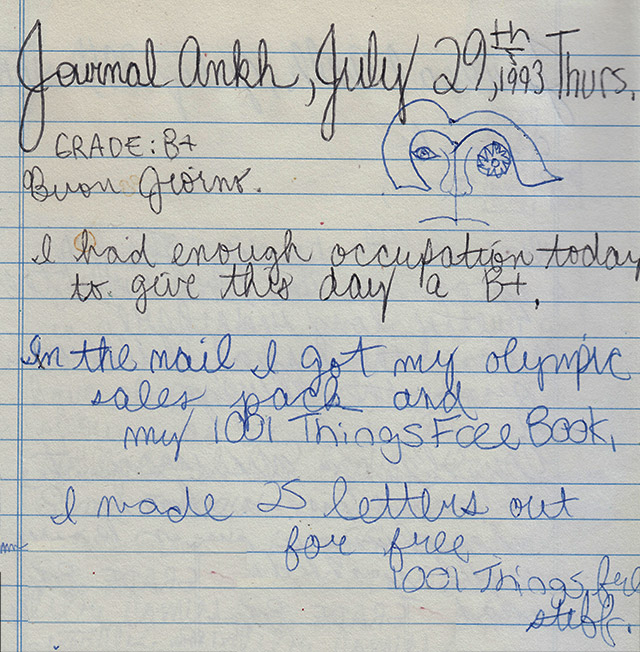 Journal Ankh, July 29th, 1993 Thurs.
GRADE: B+
Buon Giorno.
I had enough occupation today
to give this day a B+.
In the mail I got my olympic
sales pack and
my 1001 Things Free Book,
I made 25 letters out
for free
1001 Things, free
stuff.